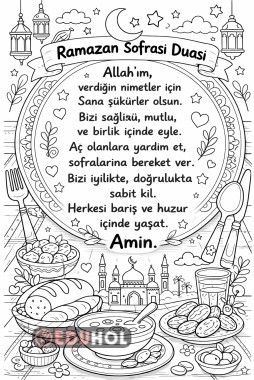 Ramazan Sofrasi Duasi
Allah'ım,
verdiğin nimetler için
Sana şükürler olsun.
Bizi sağlixü, mutlu,
ve birlik içinde eyle.
Aç olanlara yardim et,
sofralarına bereket ver.
Bizi iyilikte, doğrulukta
sabit kil.
Herkesi bariş ve huzur
içinde yaşat.
Amin.
EDUHOL